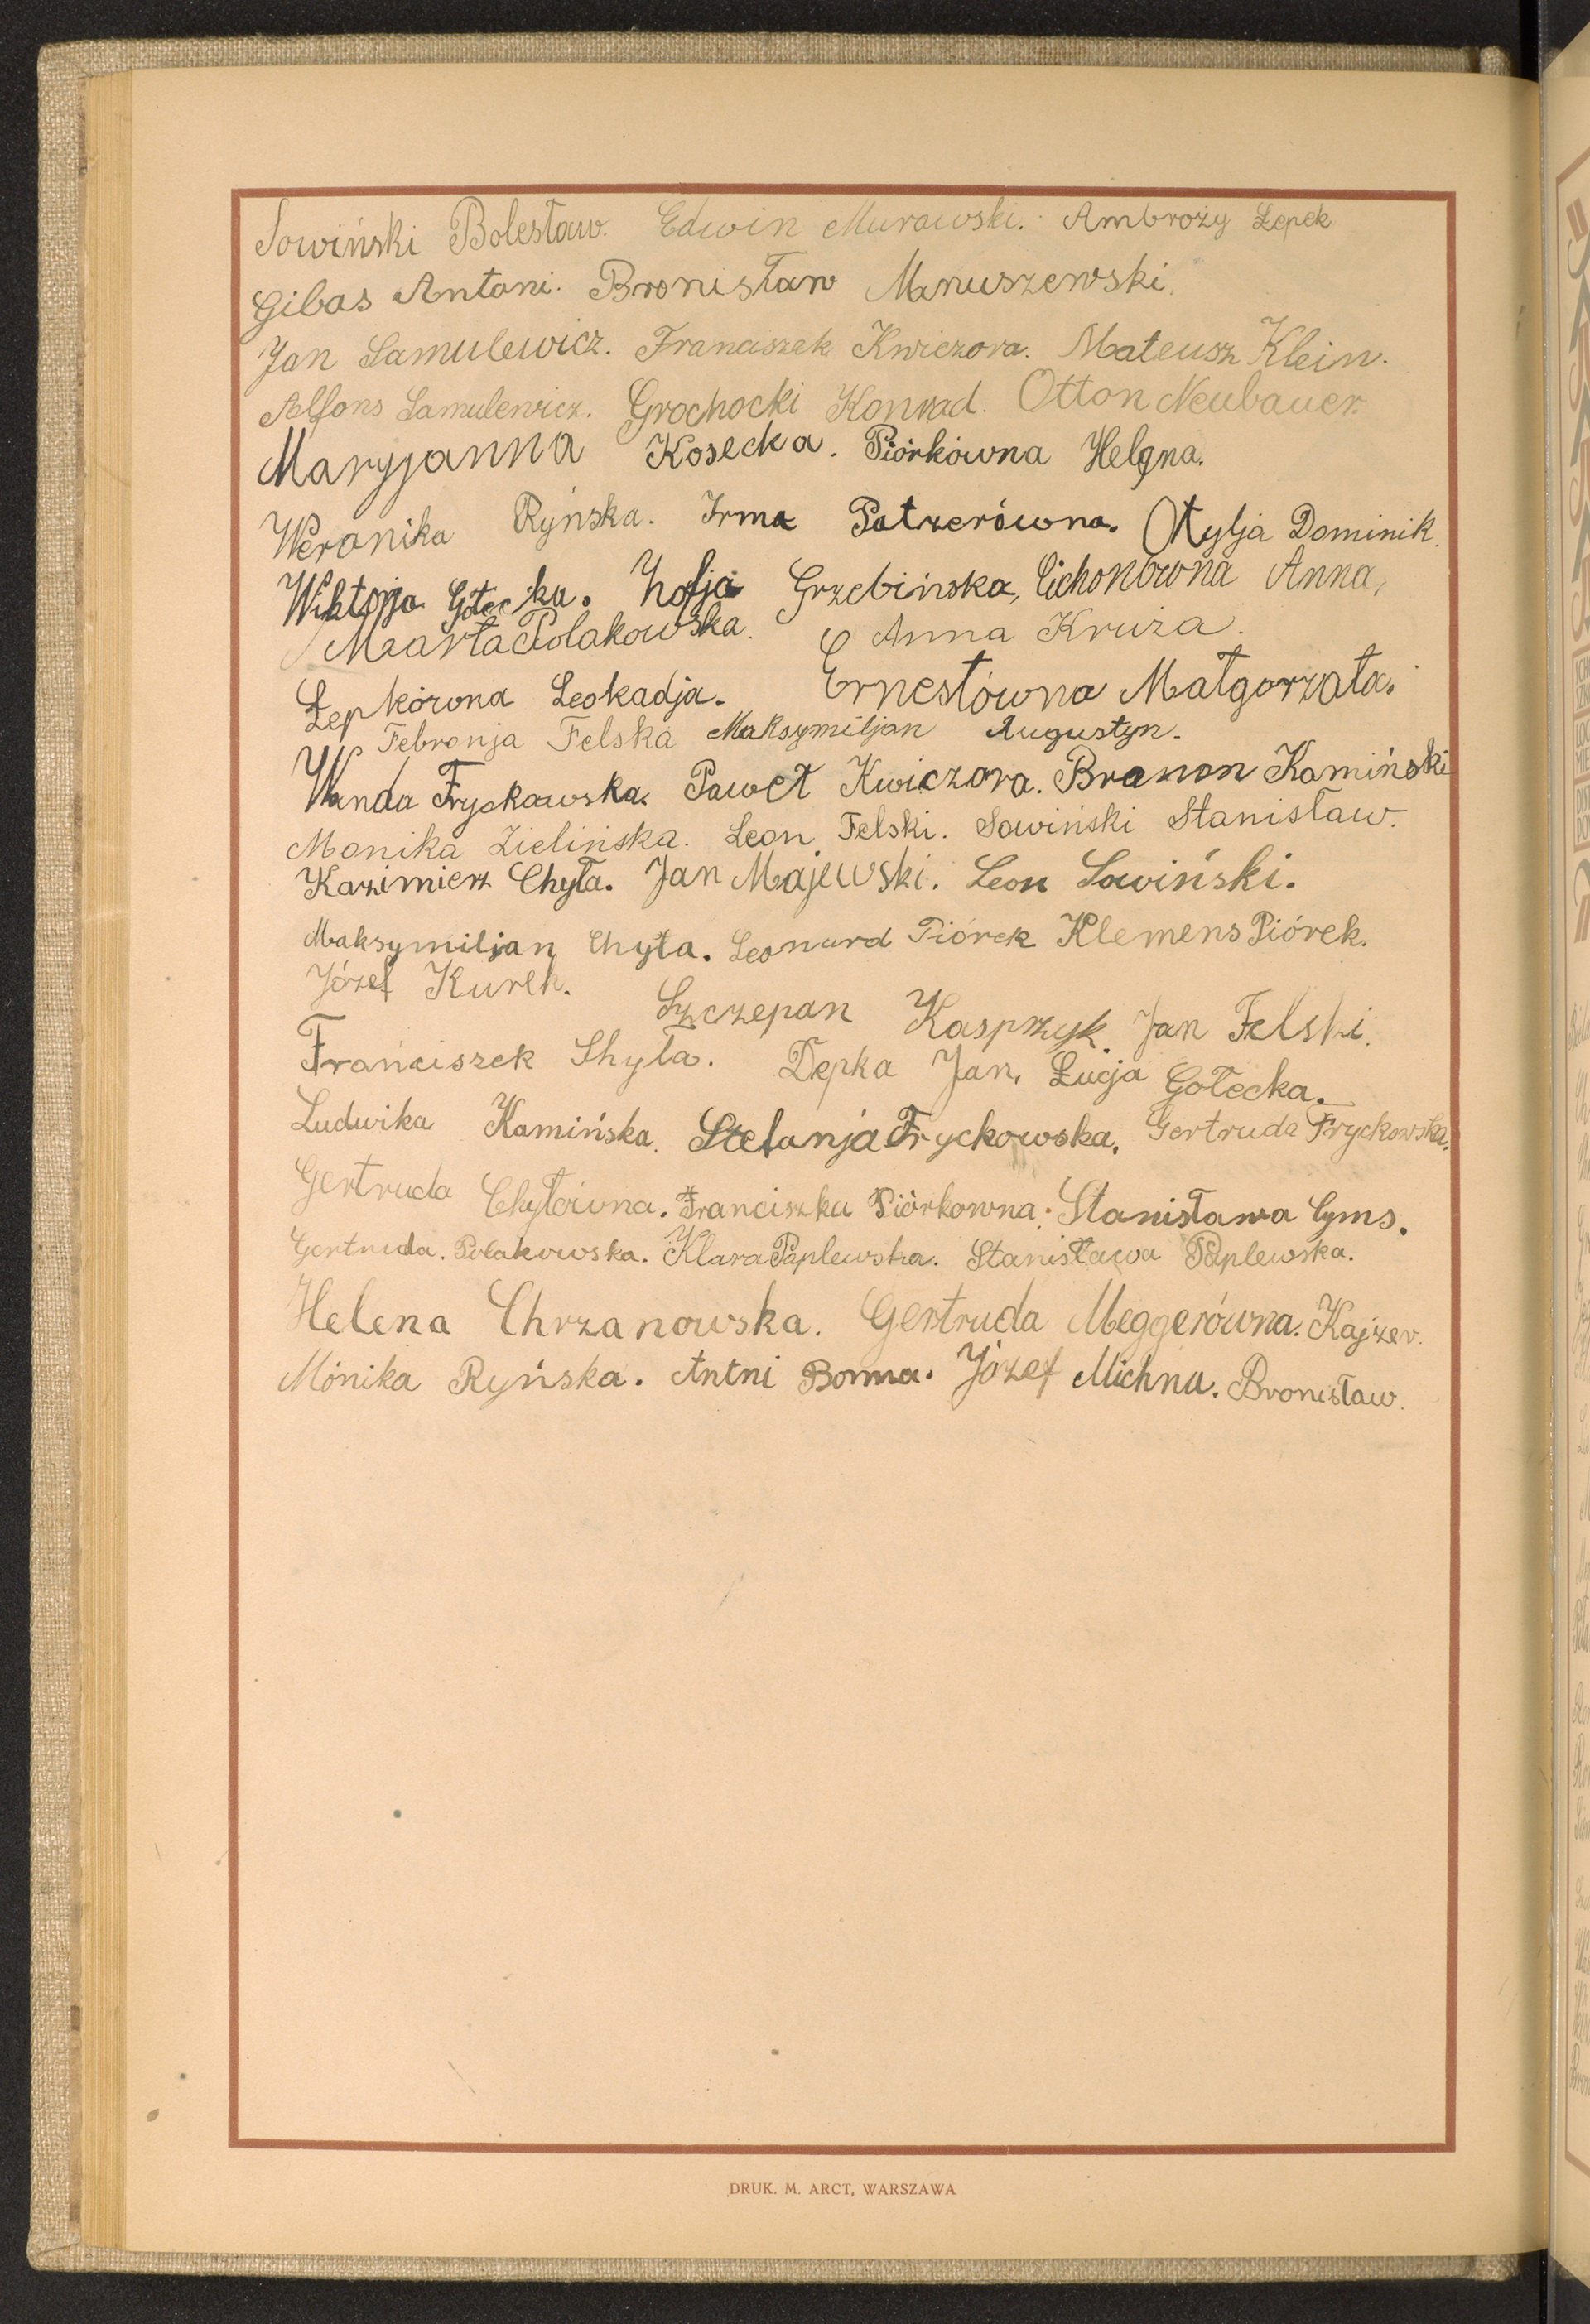 Sowiński Bolesław. Edwin Murawski. Ambroży Łepek
Gibas Antoni. Bronisław Manuszewski.
Jan Samulewicz. Franciszek Kwiczora. Mateusz Klein.
Alfons Samulewicz. Grochocki Konrad. Otton Neubauer.
Maryjanna Kosecka. Piórkówna Helena.
Weronika Ryńska. Irma Patzerówna. Otylja Dominik.
Wiktorja Gołecka. Zofja Grzebińska, Cichonówna Anna,
Marta Polakowska. Anna Kruża.
Łepkówna Leokadja. Ernestówna Małgorzata.
Febronja Felska Maksymiljan Augustyn.
Wanda Fryckowska. Paweł Kwiczora. Brunon Kamiński
Monika Zielińska. Leon Felski. Sowiński Stanisław.
Kazimierz Chyła. Jan Majewski. Leon Sowiński.
Maksymiljan Chyła. Leonard Piórek Klemens Piórek.
Józef Kurek. Szczepan Kasprzyk. Jan Felski.
Franciszek Chyła. Depka Jan, Łucja Gołecka.
Ludwika Kamińska. Stefanja Fryckowska. Gertruda Fryckowska.
Gertruda Chyłówna. Franciszka Piórkowna. Stanisława Cyms.
Gertruda. Polakowska. Klara Paplewska. Stanisława Paplewska.
Helena Chrzanowska. Gertruda Meggerówna. Kajzer.
Monika Ryńska. Antni Borma. Józef Michna. Bronisław.
DRUK. M. ARCT, WARSZAWA